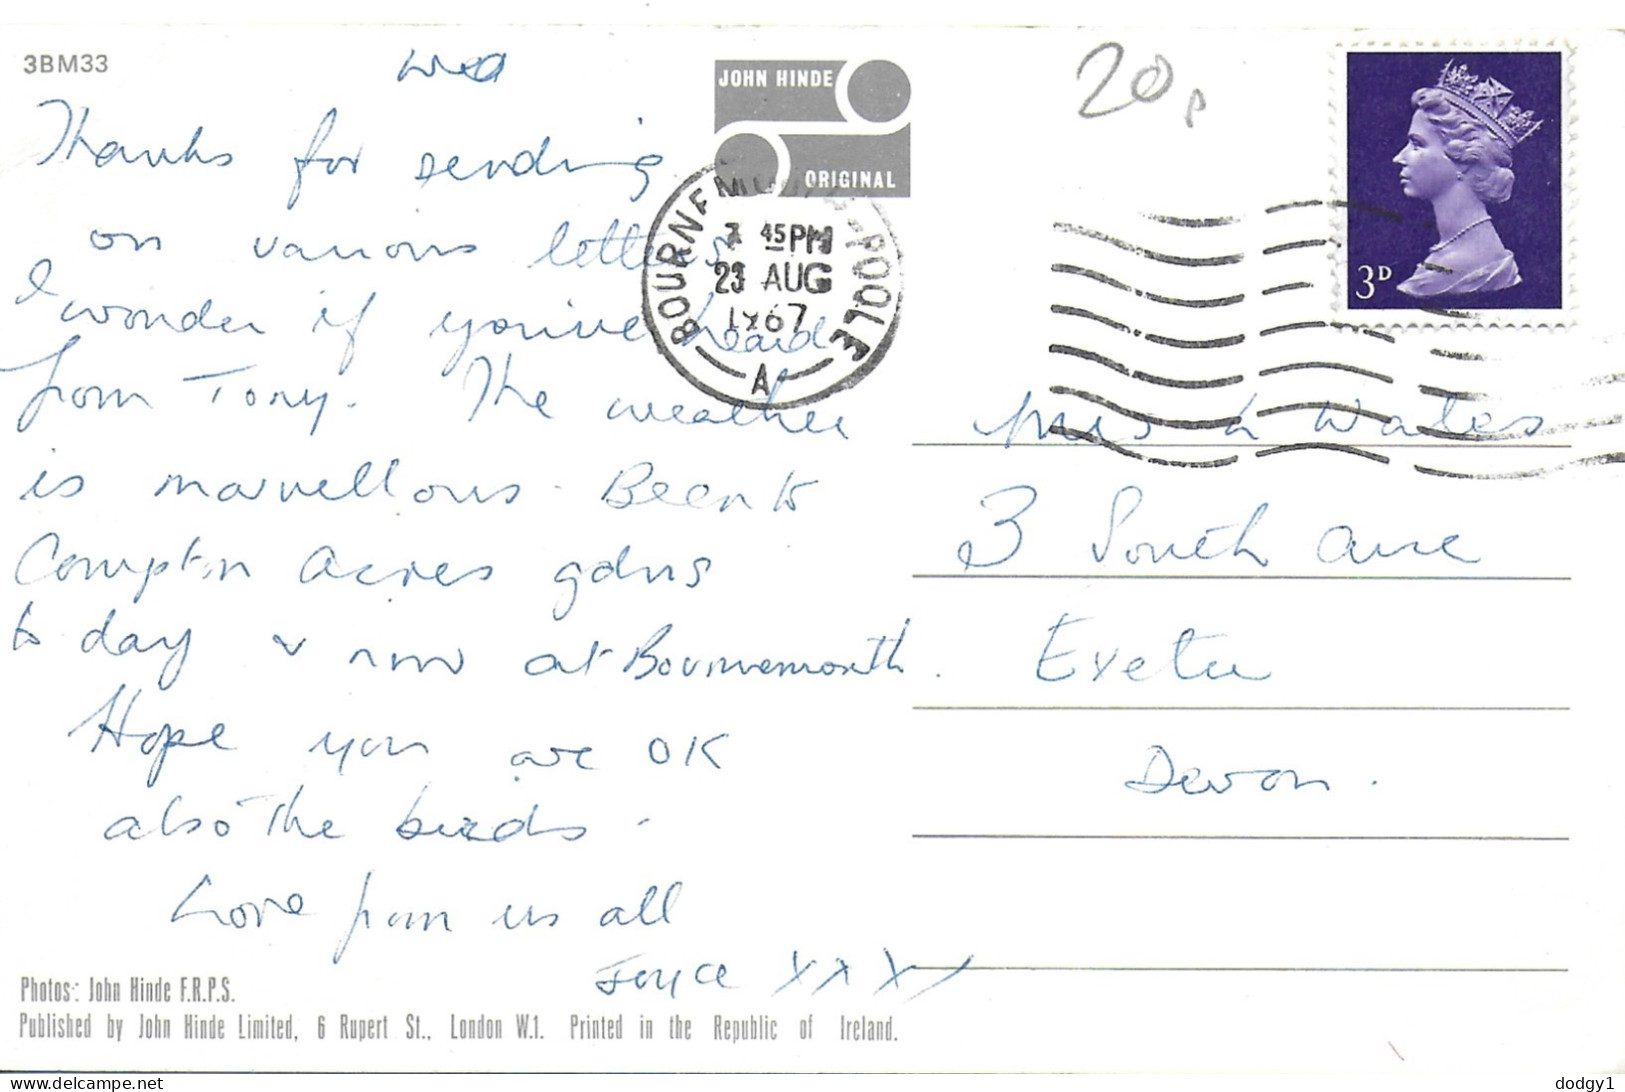 3BM33
Wed
JOHN HINDE
ORIGINAL
20p
3D
BOURNEMOUTH-POOLE
7 45PM
23 AUG
1967
A
Thanks for sending
on various letters
I wonder if you've heard
from Tony. The weather
is marvellous. Been to
Compton Acres gdns
to day & now at Bournemouth.
Hope you are OK
also the birds.
Love from us all
Joyce XXXX
Mrs L Wates
3 South Ave
Exeter
Devon.
Photos: John Hinde F.R.P.S.
Published by John Hinde Limited, 6 Rupert St., London W.1. Printed in the Republic of Ireland.
delcampe.net
dodgy1